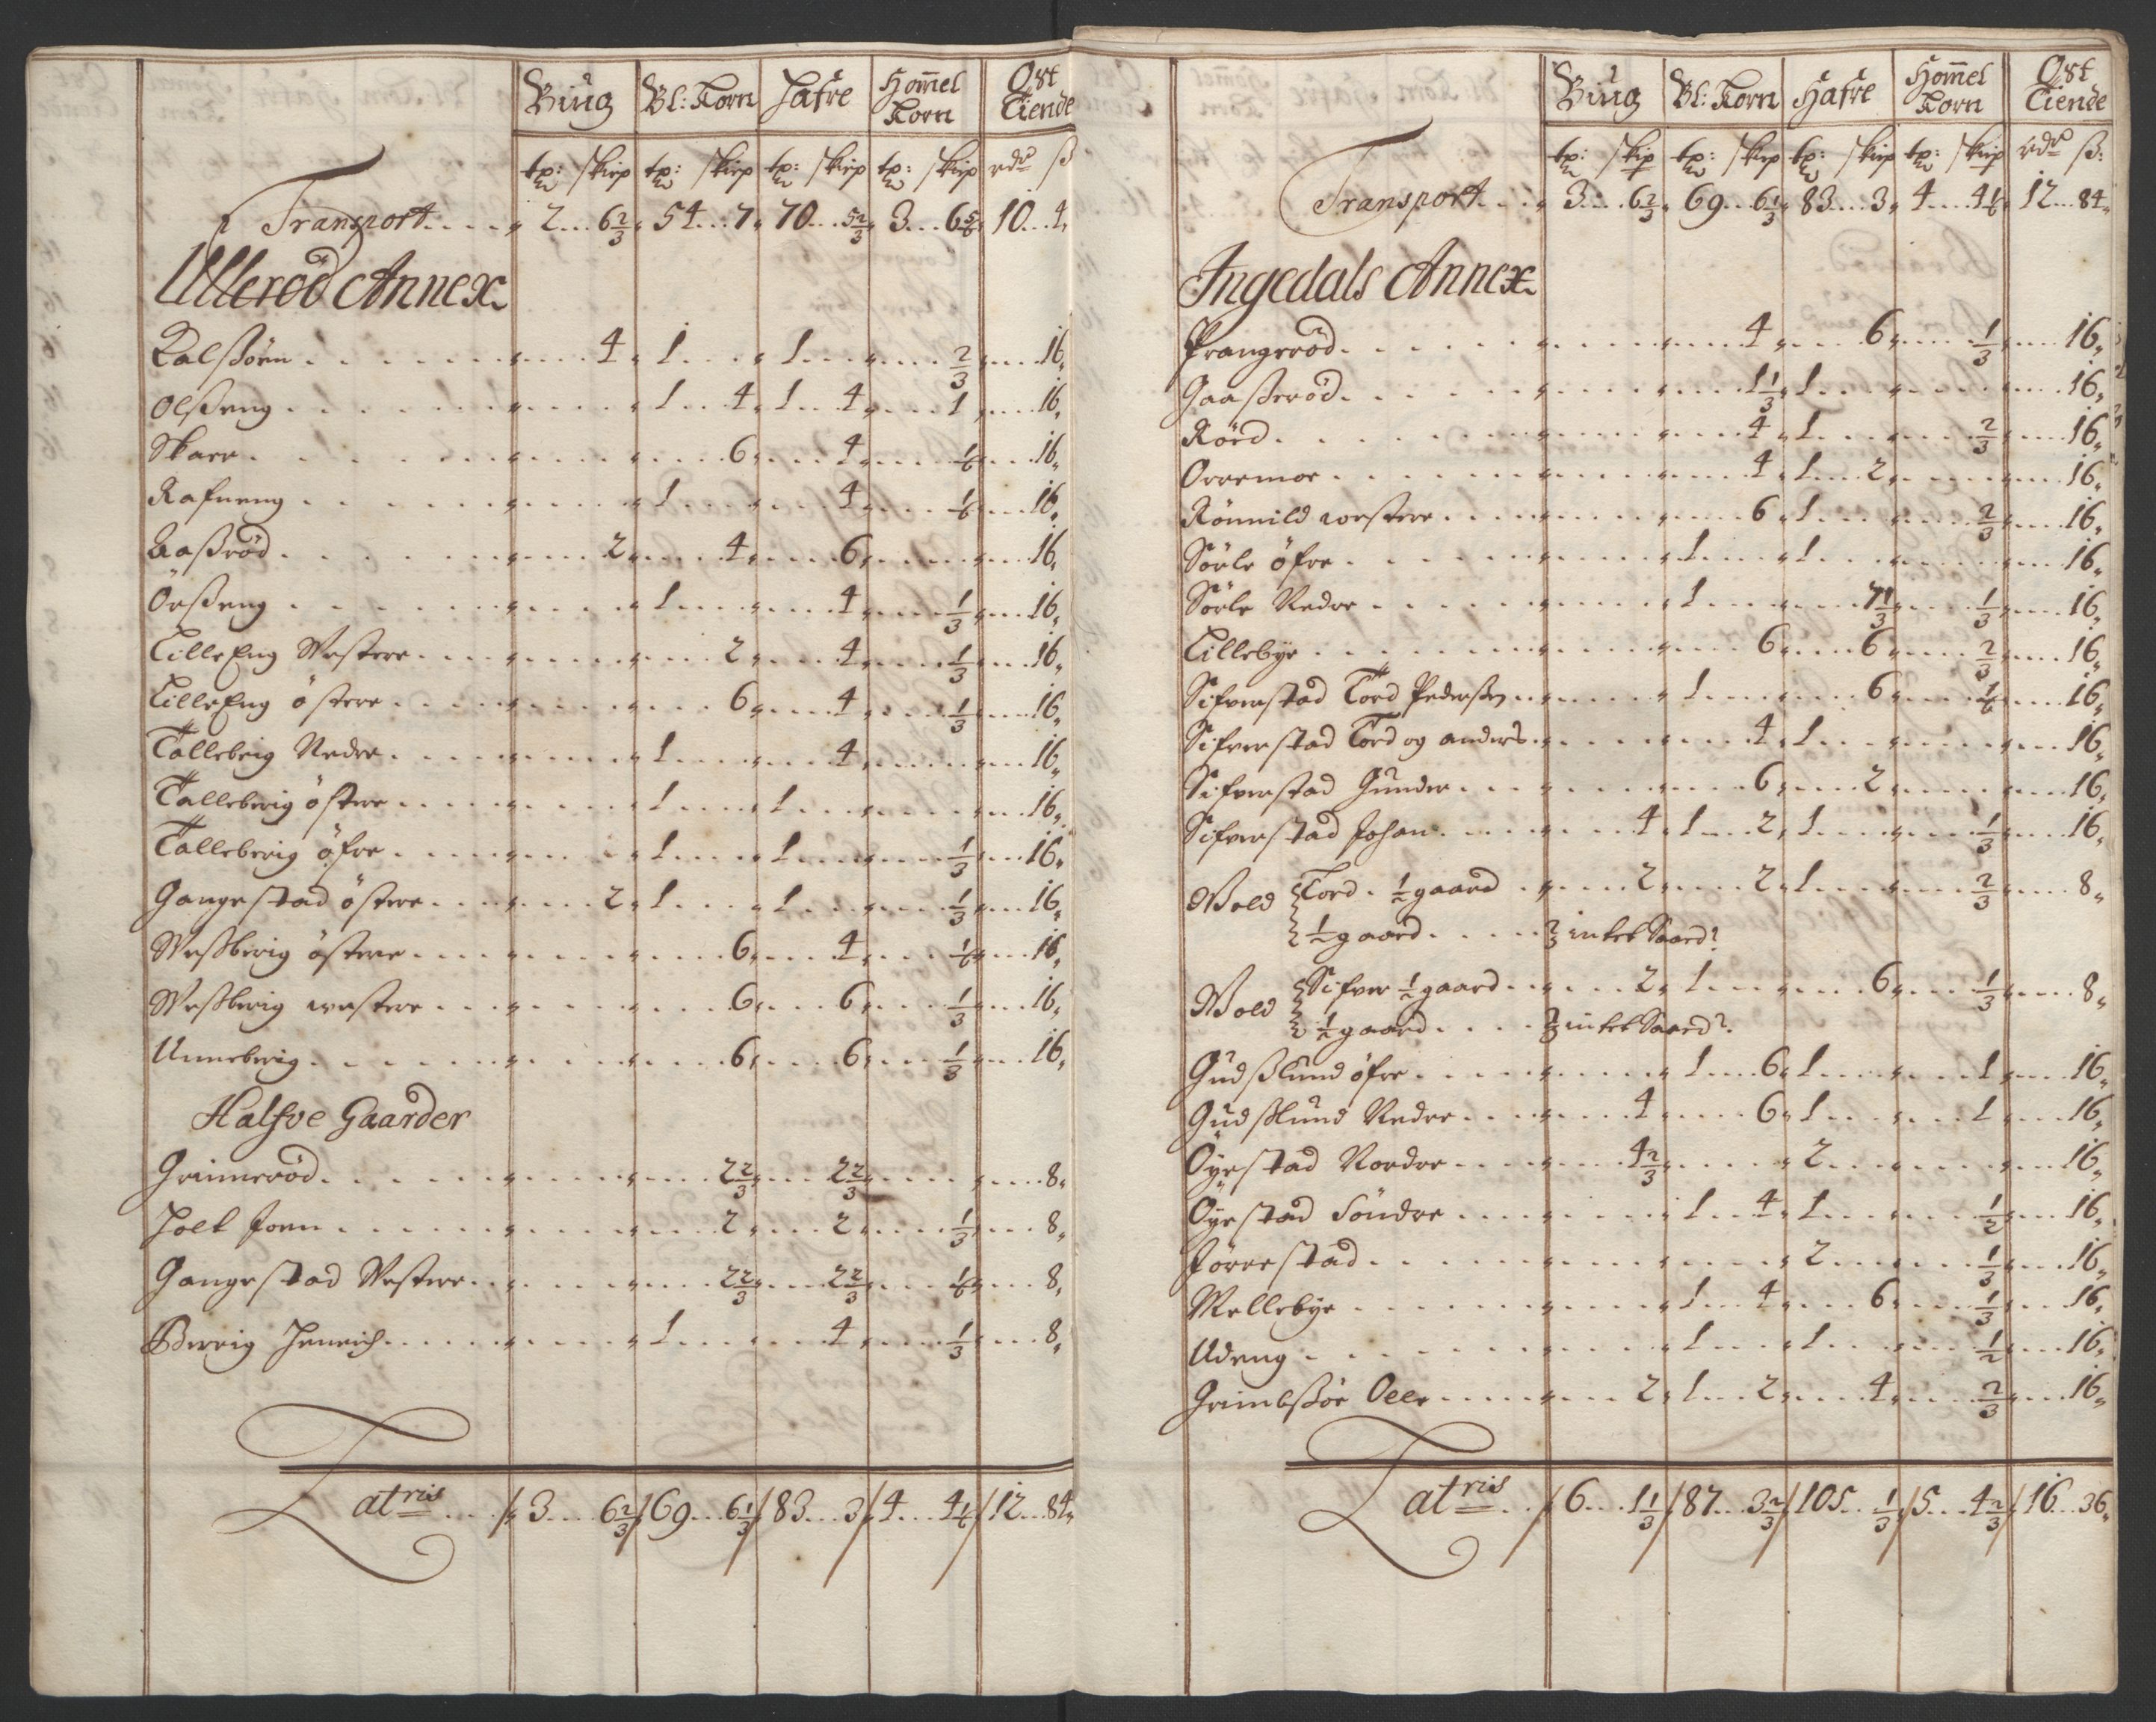 Biug Bl: Korn Hafre Hom̃el Korn Ost Tiende
tp: skiep tp: skiep tp: skiep tp: skiep rdr ß
Transport.... 2...6 2/3 54...7 70...5 2/3 3...6 5/6 10...4
Ullerød Annex
Kalsøen 4 1 1 2/3 16
Olsßeng 1 4 1 4 1 16
Skare 6 4 1/6 16
Rafneng 1 4 1/6 16
Aaßrød 2 4 6 16
Örßeng 1 4 1/3 16
LilleEng Westere 2 4 1/3 16
LilleEng östere 6 4 1/3 16
Talleberig Nedre 1 4 16
Talleberig östere 1 1 16
Talleberig öfre 1 1 1/3 16
Gangestad östere 2 1 1 1/3 16
Weßberig östere 6 4 1/6 16
Weßberig westere 6 6 1/3 16
Unneberig 6 6 1/3 16
Halfve Gaarder
Grimerød 2 2/3 2 2/3 8
Holt Joen 2 2 1/3 8
Gangestad Westere 2 2/3 2 2/3 1/6 8
Berrig Henrich 1 4 1/3 8
Latris 3...6 2/3 69...6 1/3 83...3 4...4 1/6 12...84
Biug Bl: Korn Hafre Hom̃el Korn Ost Tiende
tp: skip tp: skiep tp: skiep tp: skiep rdr ß:
Transport... 3...6 2/3 69...6 1/3 83...3 4...4 1/6 12...84
Ingedals Annex
Prangerød 4 6 1/3 16
Gaaßerød 1 1/3 1 16
Rörd 4 1 2/3 16
Orremoe 4 1 2 16
Rönnild westere 6 1 2/3 16
Sörle öfre 1 1 16
Sörle Nedre 1 7 1/3 1/3 16
Lillebye 6 6 2/3 16
Sifverstad Tord Pedersen 1 6 1/6 16
Sifverstad Tord og anders 4 1 16
Sifverstad Gunder 6 2 16
Sifverstad Johan 4 1 2 1 1/3 16
Wold Tord 1/2 gaard 2 2 1 2/3 8
1/2 gaard intet Saaed?
Wold Sifver 1/2 gaard 2 1 6 1/3 8
1/2 gaard intet Saaed?
Gudßlund öfre 1 6 1 1 16
Gudßlund Nedre 4 6 1 1 16
Öyestad Nordre 4 2/3 2 16
Öyestad Söndre 1 4 1 1/2 16
Jörrestad 2 1/3 16
Mellebye 1 4 6 1/3 16
Udeng 1 1 1/2 16
Grimbßøe Oele 2 1 2 4 2/3 16
Latris 6...1 1/3 87...3 2/3 105...1/3 5...4 2/3 16...36